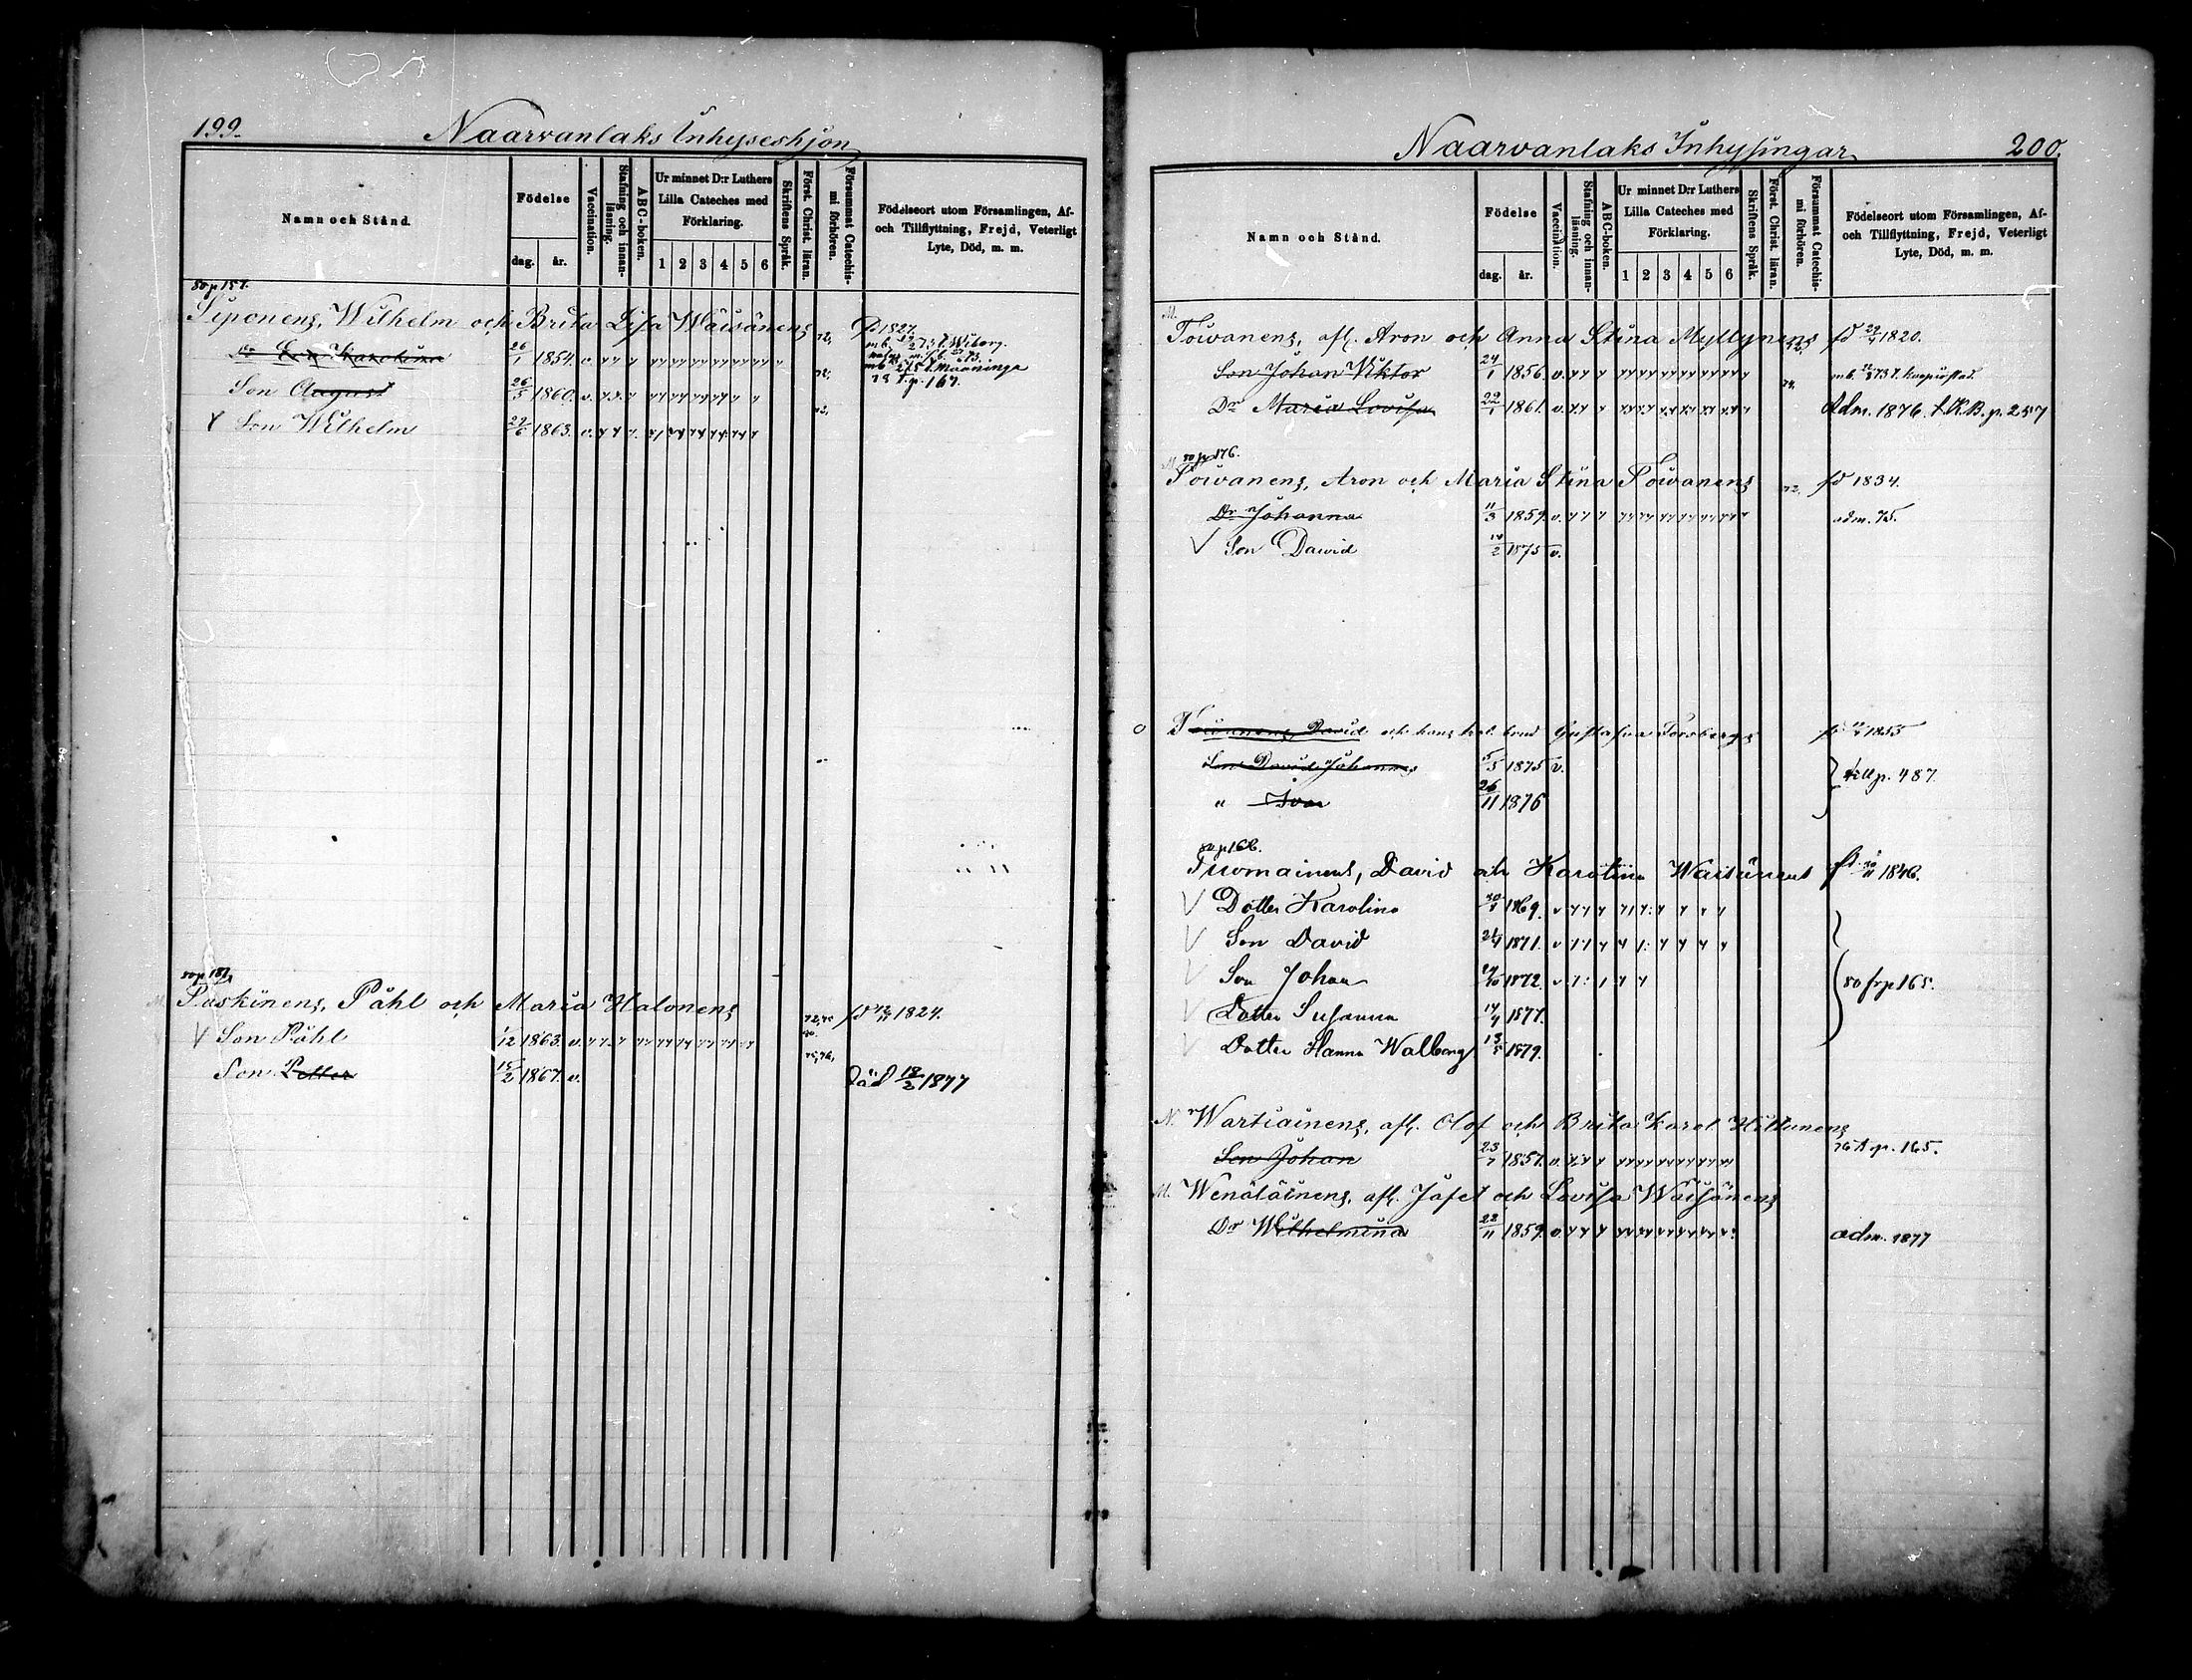 199.
Naarvanlaks Inhyseshjon
Namn och Stånd.
Födelse
dag. år.
Vaccination.
Stafning och innanläsning.
ABC-boken.
Ur minnet D:r Luthers Lilla Cateches med Förklaring.
1 2 3 4 5 6
Skriftens Språk.
Först. Christ. läran.
Försummat Catechismi förhören.
Födelseort utom Församlingen, Af- och Tillflyttning, Frejd, Veterligt Lyte, Död, m. m.
Siponens, Wilhelm och Brita Lisa Wäisänens 1827.
Dr Eva Karolina 26/1 1854. v.
Son August 26/5 1860. v. p. 167.
Son Wilhelm 27/6 1863. v.
so p 187.
Paskinens, Påhl och Maria Halonens 1824.
Son Påhl 1/12 1863. v.
Son Petter 15/2 1867. v. Död 18/2 1877
Naarvanlaks Inhysingar
200.
Namn och Stånd.
Födelse
dag. år.
Vaccination.
Stafning och innanläsning.
ABC-boken.
Ur minnet D:r Luthers Lilla Cateches med Förklaring.
1 2 3 4 5 6
Skriftens Språk.
Först. Christ. läran.
Försummat Catechismi förhören.
Födelseort utom Församlingen, Af- och Tillflyttning, Frejd, Veterligt Lyte, Död, m. m.
M.
Toivanens, afl. Aron och Anna Stina Myllynens 1820.
Son Johan Viktor 24/1 1856. v.
Dr Maria Lovisa 22/1 1861. v. Adm. 1876. K.B. p. 257
so p 176.
Toivanens, Aron och Maria Stina Toivanens 1834.
Dr Johanna 11/3 1859. v. adm. 75.
Son David 14/2 1875 v.
Toivanens, David och hans Gustafva Forsbergs 1855
Son David Johannes 5/5 1875 v. p. 487.
" Ivar 26/11 1876
so p 166.
Tuomainens, David och Karolina Waisänens 1846.
Dotter Karolina 1869. v
Son David 1871. v
Son Johan 1872. v so fr p 165.
Dotter Susanna 14/4 1877.
Dotter Hanna Walborg 1879.
N. Wartiainens, afl. Olof och Brita Karol. Hiltunens
Son Johan 23/7 1857. v. p. 165.
M. Wenäläinens, afl. Jafet och Lovisa Wäisänens
Dr Wilhelmina 22/11 1859. v. adm. 1877